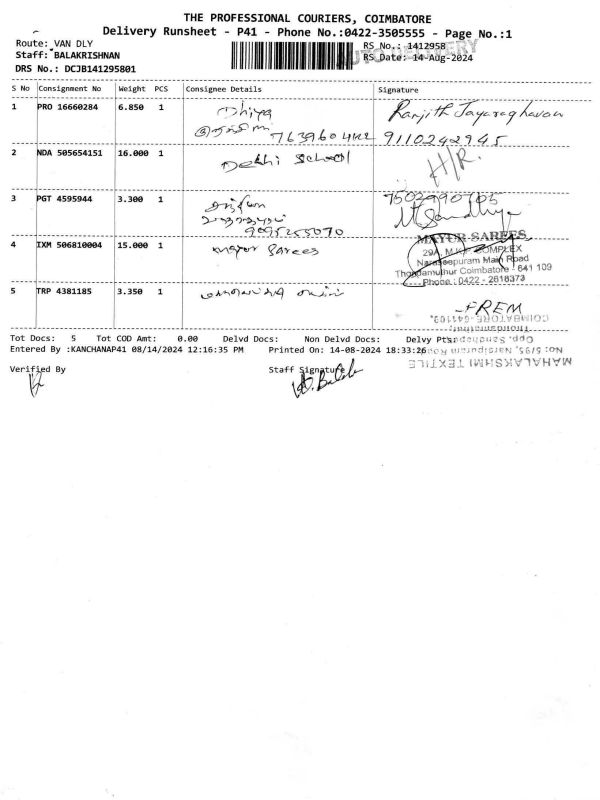 THE PROFESSIONAL COURIERS, COIMBATORE
Delivery Runsheet - P41 - Phone No.:0422-3505555 - Page No.:1
Route: VAN DLY
RS No.: 1412958
AUTO DELIVERY
Staff: BALAKRISHNAN
RS Date: 14-Aug-2024
DRS No.: DCJB141295801
S No Consignment No Weight PCS Consignee Details Signature
1 PRO 16660284 6.850 1 Dhiya Ranjith Jayaraghavan
9110242945
2 NDA 505654151 16.000 1 Delhi School H/R.
3 PGT 4595944 3.300 1
9095255070
Sandhya
4 IXM 506810004 15.000 1 Mayur Sarees
MAYUR SAREES
29A, M.K.P. COMPLEX
Naraseepuram Main Road
Thondamuthur Coimbatore - 641 109
Phone : 0422 - 2618373
5 TRP 4381185 3.350 1
PREM
COIMBATORE-641109.
Thondamuthur,
Opp. Sandhapa
No: 5/95, Narsipuram Road
MAHALAKSHMI TEXTILE
Tot Docs: 5 Tot COD Amt: 0.00 Delvd Docs: Non Delvd Docs: Delvy Pts
Entered By :KANCHANAP41 08/14/2024 12:16:35 PM Printed On: 14-08-2024 18:33:26
Verified By Staff Signature